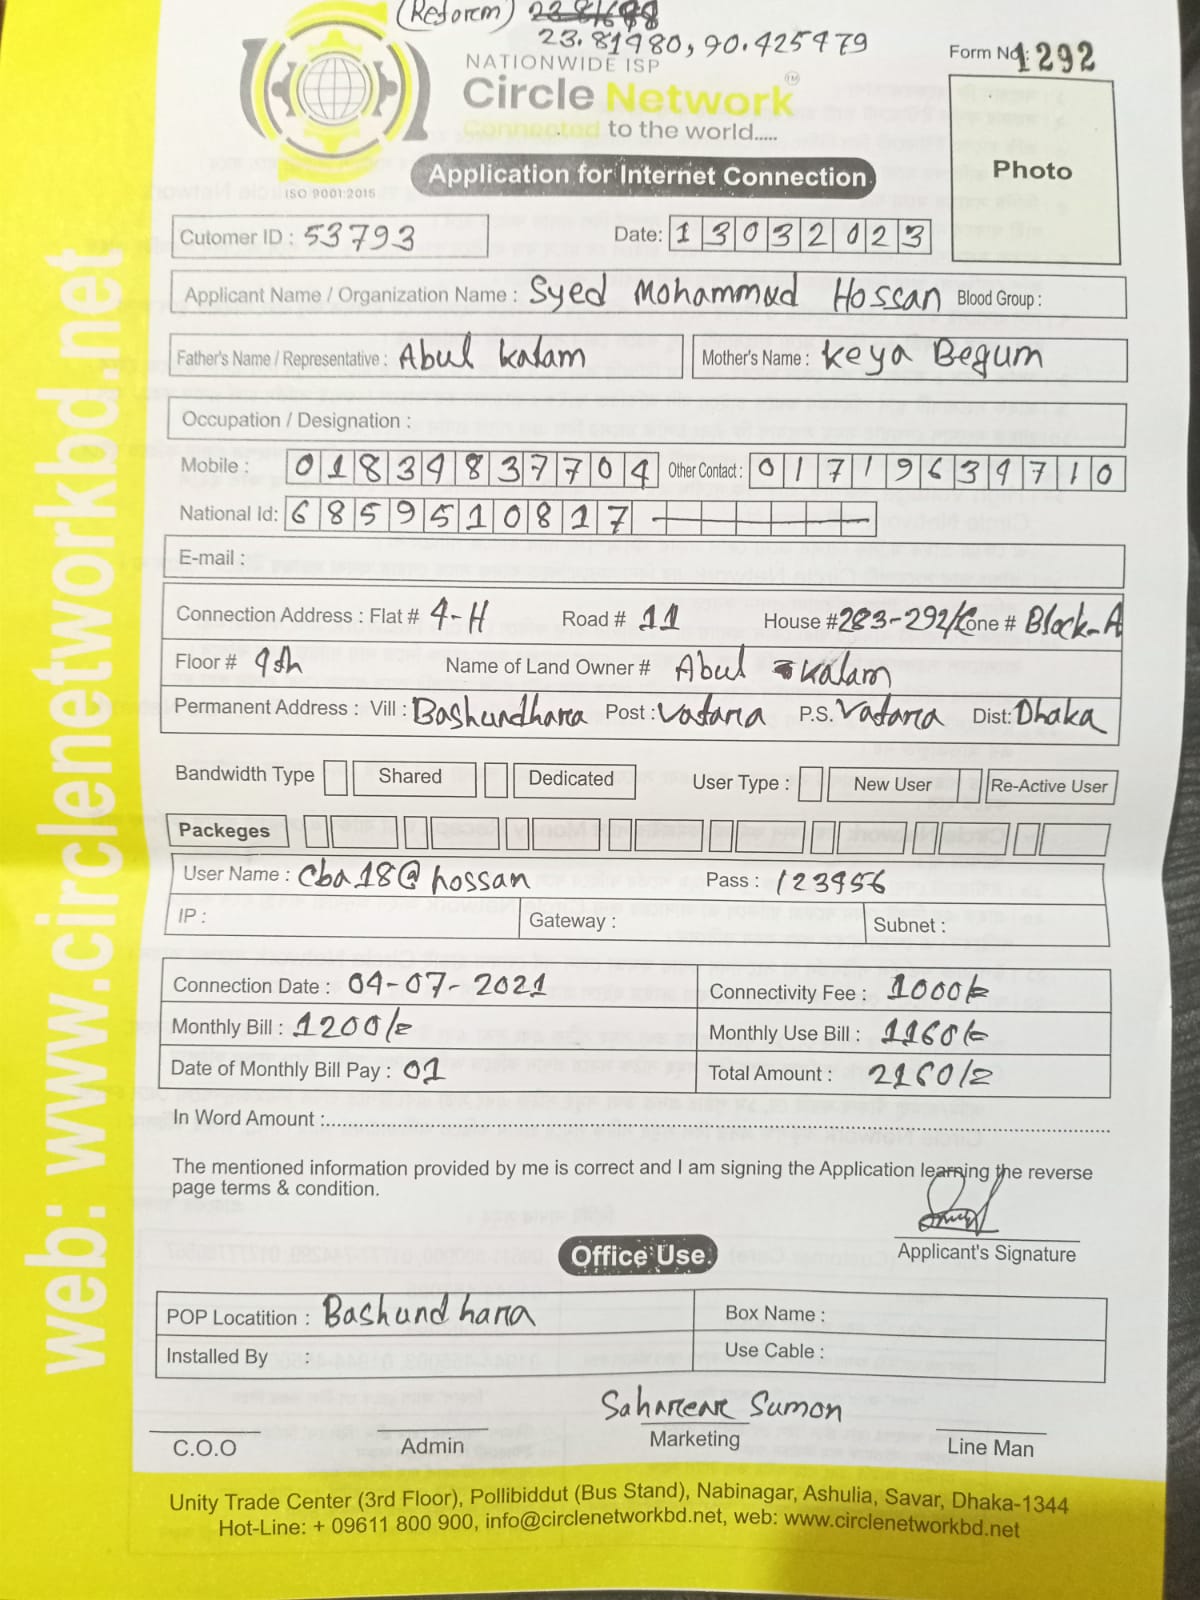 (Reform)
23.81980, 90.425479
NATIONWIDE ISP
Form No: 1292
Circle Network™
Connected to the world.....
ISO 9001:2015
Application for Internet Connection
Photo
Cutomer ID : 53793
Date: 13032023
Applicant Name / Organization Name : Syed Mohammud Hossan Blood Group :
Father's Name / Representative : Abul Kalam Mother's Name : Keya Begum
Occupation / Designation :
Mobile : 01839837704 Other Contact : 01719639710
National Id: 6859510817
E-mail :
Connection Address : Flat # 4-H Road # 11 House # 283-292/C Zone # Block-A
Floor # 9th Name of Land Owner # Abul Kalam
Permanent Address : Vill : Bashundhara Post : Vatara P.S. Vatara Dist: Dhaka
Bandwidth Type Shared Dedicated User Type : New User Re-Active User
Packeges
User Name : cba18@hossan Pass : 123456
IP : Gateway : Subnet :
Connection Date : 04-07-2021 Connectivity Fee : 1000/=
Monthly Bill : 1200/= Monthly Use Bill : 1160/=
Date of Monthly Bill Pay : 01 Total Amount : 2160/=
In Word Amount :
The mentioned information provided by me is correct and I am signing the Application learning the reverse
page terms & condition.
Applicant's Signature
Office Use.
POP Locatition : Bashundhara Box Name :
Installed By : Use Cable :
Saharear Sumon
C.O.O Admin Marketing Line Man
Unity Trade Center (3rd Floor), Pollibiddut (Bus Stand), Nabinagar, Ashulia, Savar, Dhaka-1344
Hot-Line: + 09611 800 900, info@circlenetworkbd.net, web: www.circlenetworkbd.net
web: www.circlenetworkbd.net